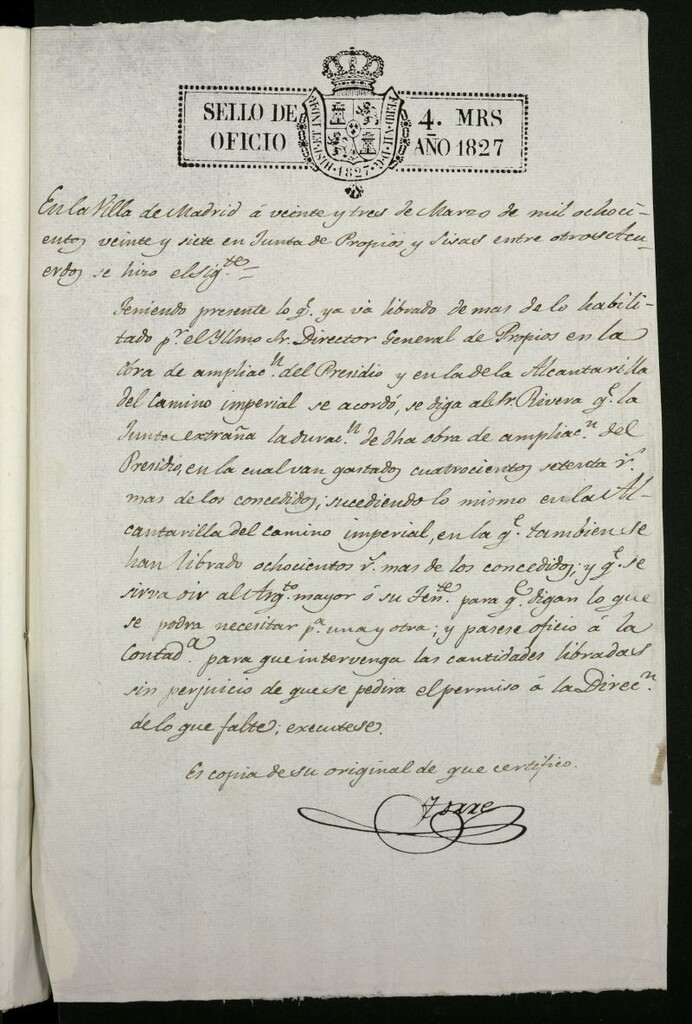 SELLO DE OFICIO
4. MRS AÑO 1827
FERD·VII·D·G·HISP·ET IND·R· 1827
En la Villa de Madrid á veinte y tres de Marzo de mil ochoci-
entos veinte y siete en Junta de Propios y Sisas entre otros Acu-
erdos se hizo el sig.te =
Teniendo presente lo q.e ya va librado de mas de lo habili-
tado p.r el Yllmo Sr. Director General de Propios en la
obra de ampliac.n del Presidio y en la de la Alcantarilla
del Camino imperial se acordó, se diga al Sr. Rivera q.e la
Junta extraña la durac.n de dha obra de ampliac.n del
Presidio, en la cual van gastados cuatrocientos setenta r.s
mas de los concedidos; sucediendo lo mismo en la Al-
cantarilla del camino imperial, en la q.e tambien se
han librado ochocientos r.s mas de los concedidos; y q.e se
sirva oir al Arq.to mayor ó su Ten.te para q.e digan lo que
se podra necesitar p.a una y otra; y pasese oficio á la
Contad.a para que intervenga las cantidades libradas
sin perjuicio de que se pedira el permiso á la Direc.n
de lo que falte; executese.
Es copia de su original de que certifico.